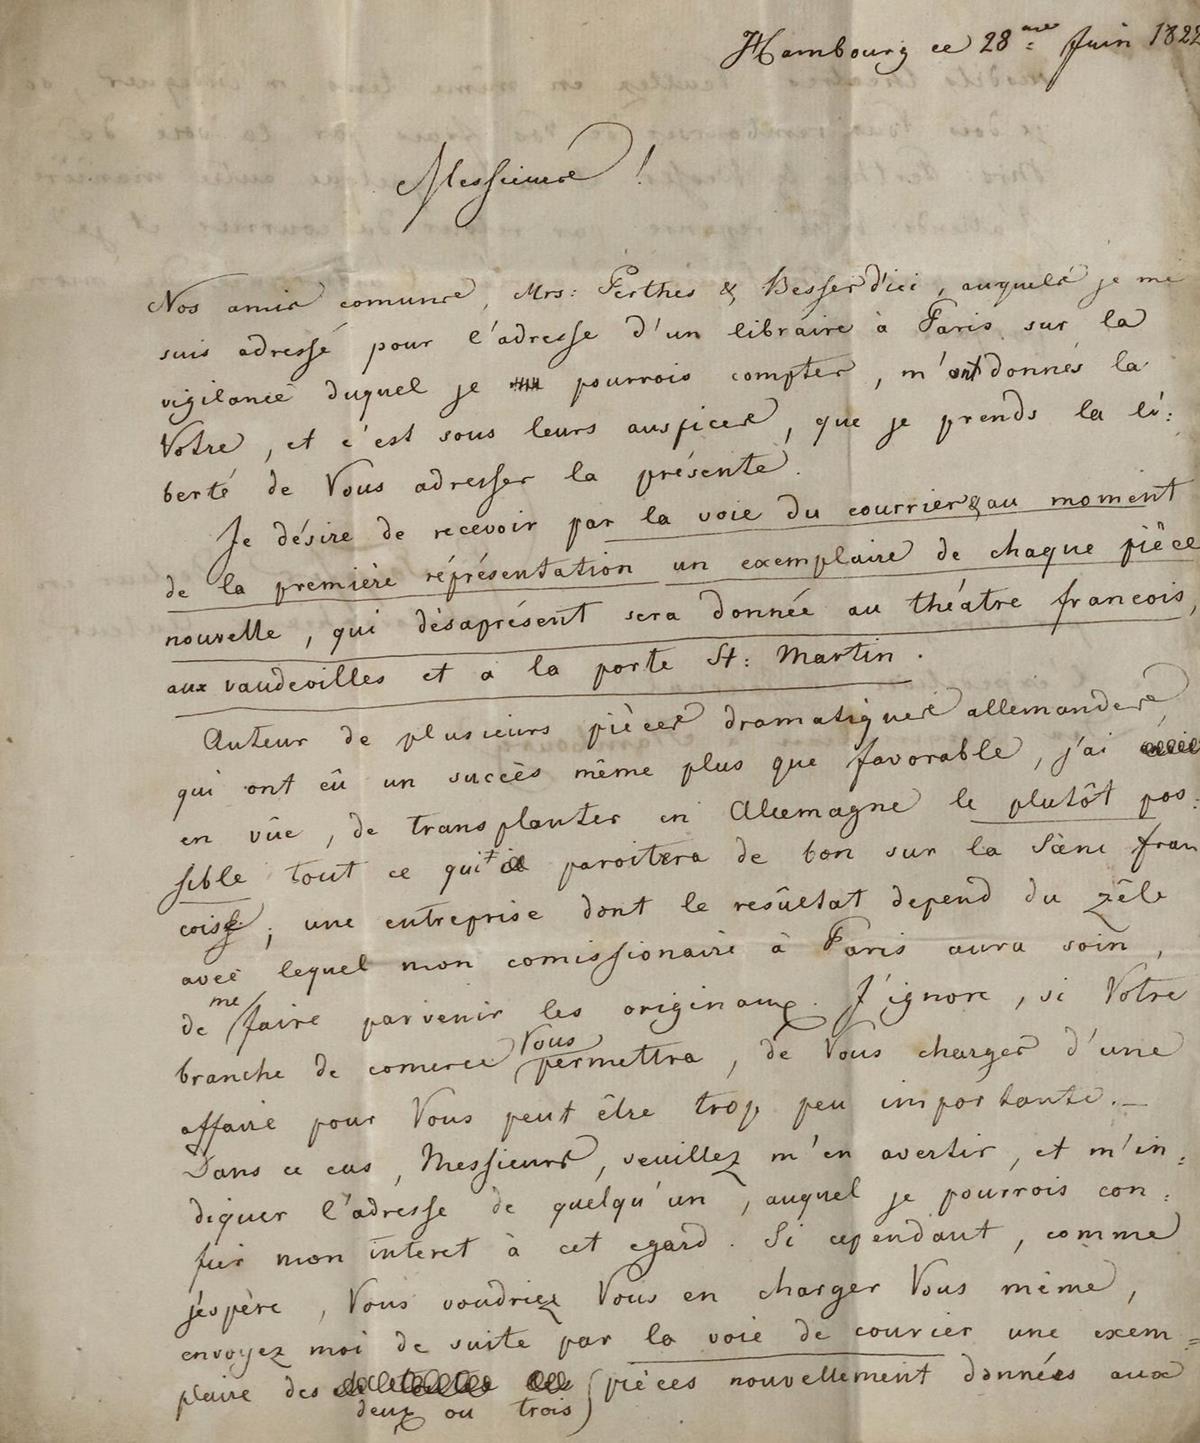 Hambourg ce 28me Juin 1822
Messieurs !
Nos amis comuns, Mrs: Perthes & Besser d'ici, auquels je me
suis adressé pour l'adresse d'un libraire à Paris sur la
vigilance duquel je pourrois compter, m'ont donnés la
Votre, et c'est sous leurs auspices, que je prends la li:
berté de Vous adresser la présente.
Je désire de recevoir par la voie du courrier & au moment
de la première réprésentation un exemplaire de chaque pièce
nouvelle, qui dèsaprésent sera donnée au théatre francois,
aux vaudevilles et a la porte St: Martin.
Auteur de plusieurs pièces dramatiques allemandes,
qui ont eû un succès même plus que favorable, j'ai
en vûe, de transplanter en Allemagne le plutôt pos:
sible tout ce qui paroitera de bon sur la Scène fran
coise; une entreprise dont le resûltat depend du zêle
avec lequel mon comissionaire à Paris aura soin,
de me faire parvenir les originaux. J'ignore, si Votre
branche de comerce Vous permettra, de Vous charger d'une
affaire pour Vous peut être trop peu importante.—
Dans ce cas, Messieurs, veuillez m'en avertir, et m'in:
diquer l'adresse de quelqu'un, auquel je pourrois con:
fier mon interet à cet egard. Si cependant, comme
j'espère, Vous voudriez Vous en charger Vous même,
envoyez moi de suite par la voie de courier une exem=
plaire des deux ou trois pièces nouvellement données aux